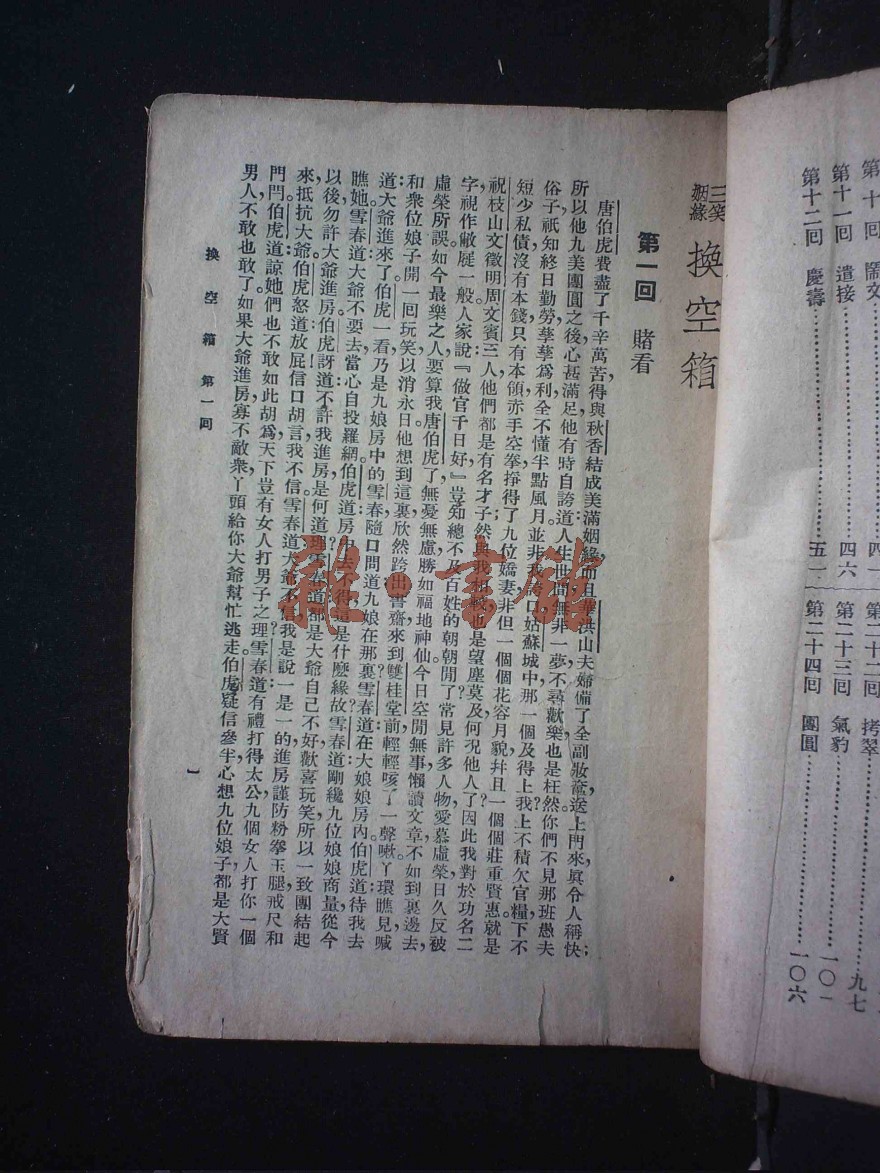 第十回 鬧文
四一
第二十二回 拷翠
九七
第十一回 遣接
四六
第二十三回 氣豹
一〇一
第十二回 慶壽
五一
第二十四回 團圓
一〇六
三笑姻緣 換空箱
第一回 賭看
唐伯虎費盡了千辛萬苦得與秋香結成美滿姻緣而且華洪山夫婦備了全副妝奩送上門來眞令人稱快;
所以他九美團圓之後心甚滿足他有時自誇道人生世間無非一夢不尋歡樂也是枉然你們不見那班愚夫
俗子祇知終日勤勞孳孳爲利全不懂半點風月並非我誇口姑蘇城中那一個及得上我上不積欠官糧下不
短少私債沒有本錢只有本領赤手空拳掙得了九位嬌妻非但一個個花容月貌幷且一個個莊重賢惠就是
祝枝山文徵明周文賓三人他們都是有名才子然與我相較也是望塵莫及何况他人了因此我對於功名二
字視作敝屣一般人家說『做官千日好』豈知總不及百姓的朝朝閒了常見許多人物愛慕虛榮日久反被
虛榮所誤如今最樂之人要算我唐伯虎了無憂無慮勝如福地神仙今日空閒無事懶讀文章不如到裏邊去
和衆位娘子開一回玩笑以消永日他想到這裏欣然跨出書齋來到雙桂堂前輕輕咳了一聲嗽丫環瞧見喊
道:大爺進來了伯虎一看乃是九娘房中的雪春隨口問道九娘在那裏雪春道在大娘娘房內伯虎道待我去
瞧她雪春道大爺不要去當心自投羅網伯虎道房內去不得這是什麽緣故雪春道剛纔九位娘娘商量從今
以後勿許大爺進房伯虎訝道不許我進房是何道理雪春道都是大爺自己不好歡喜玩笑所以一致團結起
來抵抗大爺伯虎怒道放屁信口胡言我不信雪春道大爺不信我是說一是一的進房謹防粉拳玉腿戒尺和
門閂伯虎道諒她們也不敢如此胡爲天下豈有女人打男子之理雪春道有禮打得太公九個女人打你一個
男人不敢也敢了如果大爺進房寡不敵衆丫頭給你大爺幫忙逃走伯虎疑信參半心想九位娘子都是大賢
換空箱 第一回
一
雜·書館